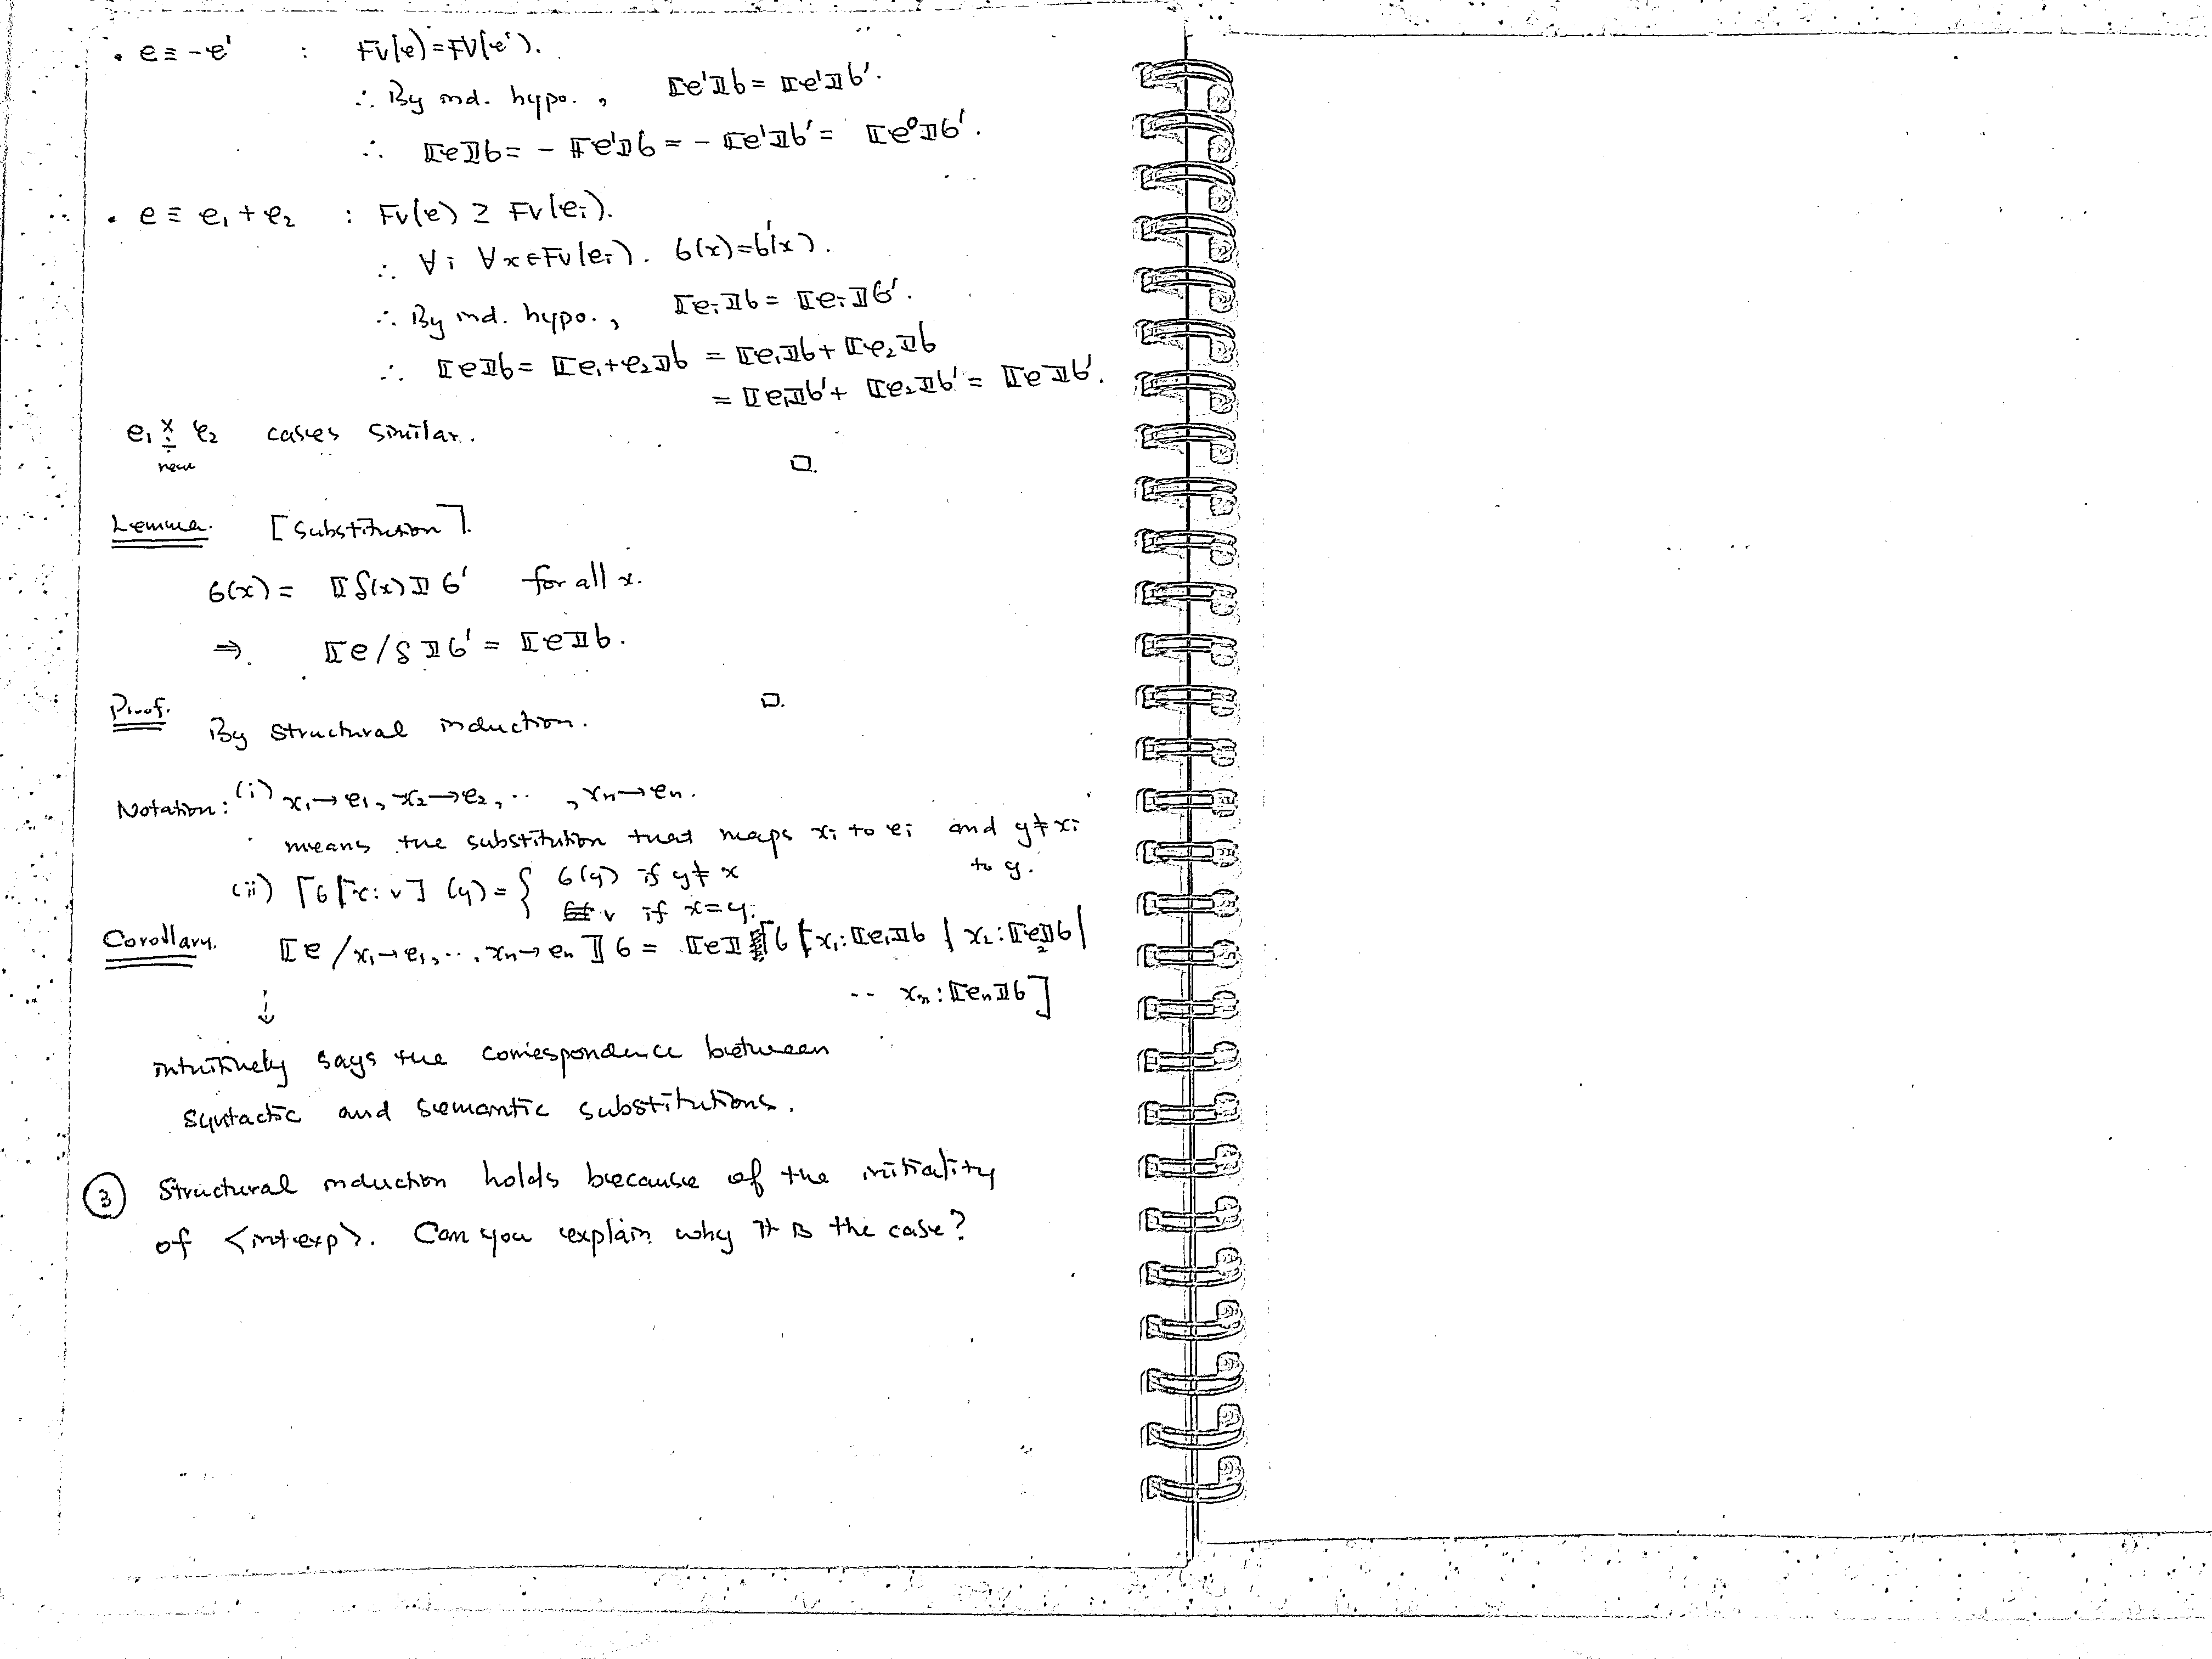 • e ≡ -e' : FV(e) = FV(e').
∴ By ind. hypo., ⟦e'⟧σ = ⟦e'⟧σ'.
∴ ⟦e⟧σ = - ⟦e'⟧σ = - ⟦e'⟧σ' = ⟦e⟧σ'.
• e ≡ e₁ + e₂ : FV(e) ⊇ FV(eᵢ).
∴ ∀i ∀x∈FV(eᵢ). σ(x) = σ'(x).
∴ By ind. hypo., ⟦eᵢ⟧σ = ⟦eᵢ⟧σ'.
∴ ⟦e⟧σ = ⟦e₁+e₂⟧σ = ⟦e₁⟧σ + ⟦e₂⟧σ
= ⟦e₁⟧σ' + ⟦e₂⟧σ' = ⟦e⟧σ'.
e₁ × ÷ e₂ cases similar.
□.
Lemma. [Substitution].
σ(x) = ⟦δ(x)⟧σ' for all x.
⇒. ⟦e/δ⟧σ' = ⟦e⟧σ.
Proof. □.
By structural induction.
Notation: (i) x₁→e₁, x₂→e₂, .. , xₙ→eₙ.
means the substitution that maps xᵢ to eᵢ and y≠xᵢ
to y.
(ii) [σ|x:v](y) = { σ(y) if y≠x
v if x=y.
Corollary. ⟦e/x₁→e₁, .., xₙ→eₙ⟧σ = ⟦e⟧[σ|x₁:⟦e₁⟧σ | x₂:⟦e₂⟧σ|
-- xₙ:⟦eₙ⟧σ]
↓
intuitively says the correspondence between
syntactic and semantic substitutions.
③ Structural induction holds because of the initiality
of <intexp>. Can you explain why it is the case?